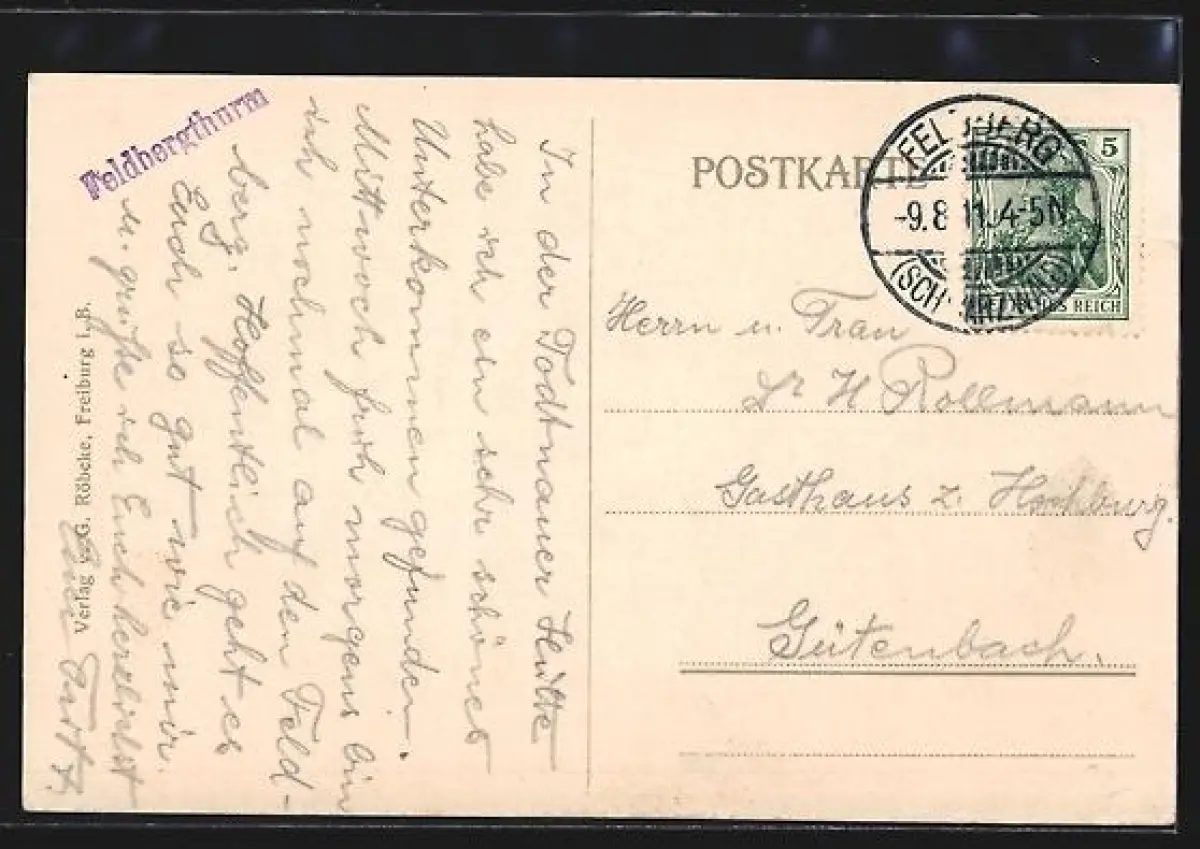 Feldbergthurm
In der Todtnauer Hütte
habe ich ein sehr schönes
Unterkommen gefunden.
Mittwoch früh morgens bin
ich nochmal auf den Feld-
berg. Hoffentlich geht es
Euch so gut wie mir.
u. grüße ich Euch herzlichst
Euer
Verlag v. G. Röbcke, Freiburg i. B.
POSTKARTE
5
REICH
FELDBERG
-9.8.11. 4-5N
(SCHWARZWALD)
Herrn u. Frau
Dr H Rollmann
Gasthaus z. Hochburg.
Gütenbach.